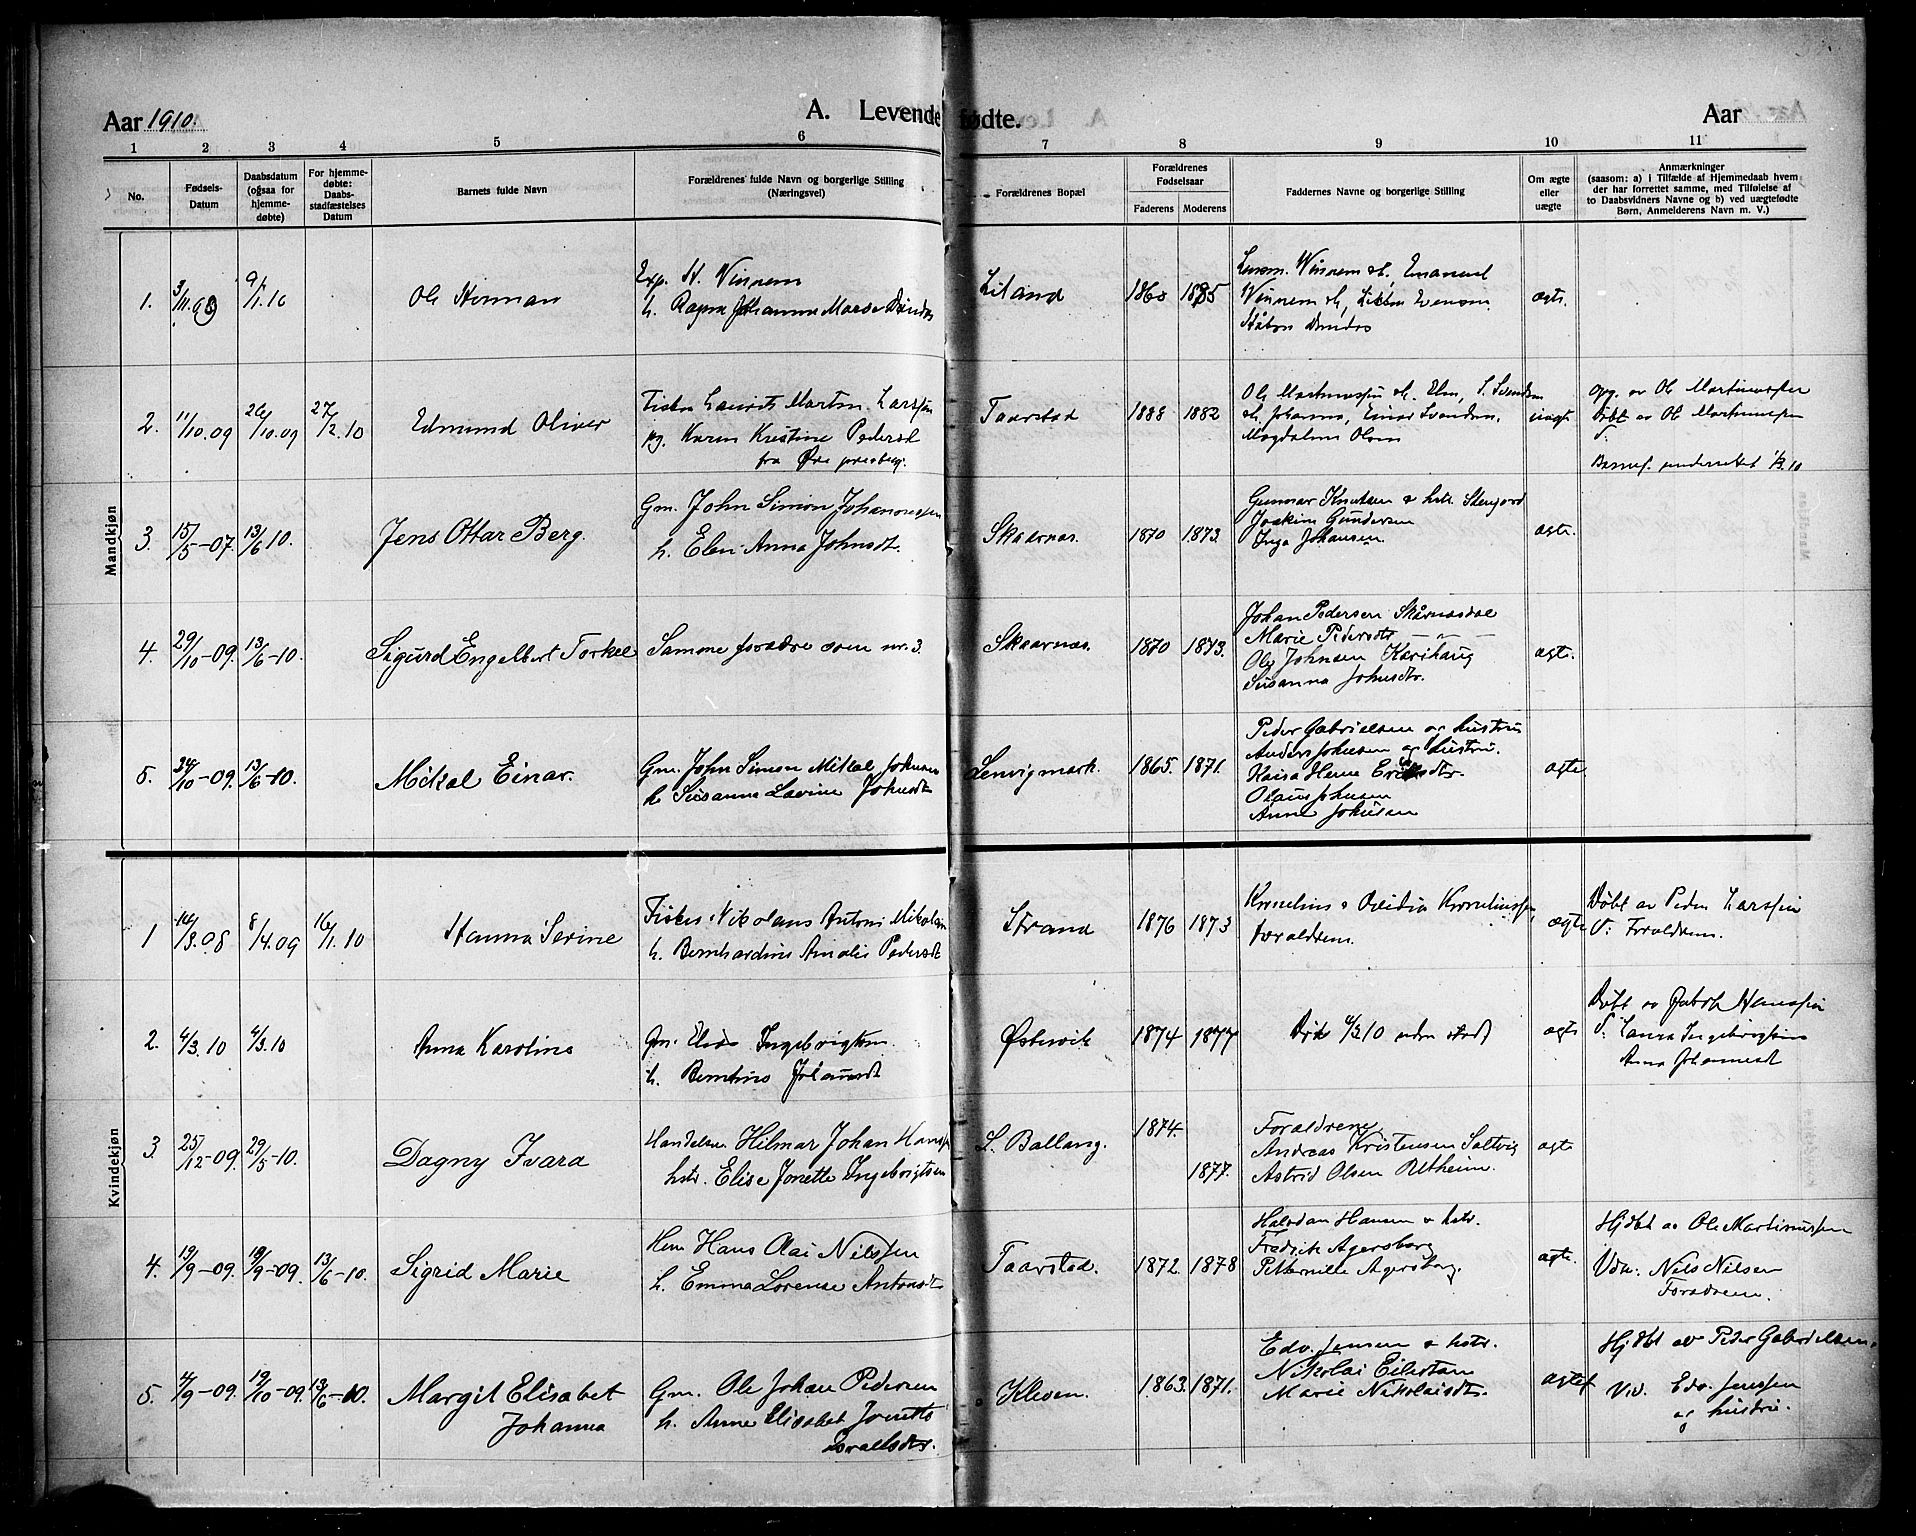 Aar 1910.
A. Levendefødte.
Aar
1 2 3 4 5 6 7 8 9 10 11
No.
Fødsels-
Datum
Daabsdatum
(ogsaa for
hjemme-
døbte)
For hjemme-
døbte:
Daabs-
stadfæstelses
Datum
Barnets fulde Navn
Forældrenes fulde Navn og borgerlige Stilling
(Næringsvei)
Forældrenes Bopæl
Forældrenes
Fødselsaar
Faderens Moderens
Faddernes Navne og borgerlige Stilling
Om ægte
eller
uægte
Anmærkninger
(saasom: a) i Tilfælde af Hjemmedaab hvem
der har forrettet samme, med Tilføielse af
to Daabsvidners Navne og b) ved uægtefødte
Børn, Anmelderens Navn m. V.)
Mandkjøn
1. 9/1.10
h. Ragna Johanna
Liland 1885
ægte.
2. 11/10.09 26/10.09 27/2.10 Edmund Oliver
Laurits Martin Larssen
Karen Kristine Pedersd
fra
Taarstad 1888 1882
Magdalena Olsen
uægte
Døbt av Ole Martinussen
3. 15/5-07. 13/6 10. Jens Ottar Berg.
Gm. John Simon Johannessen
h. Elen Anna Johnsdt.
Skaarnes. 1870 1873.
Gunnar Knutsen & hstr.
Joakim Gundersen
Inga Johansen.
ægte.
4. 29/10-09. 13/6-10. Sigurd Engelbert Torkel
Samme forældre som nr. 3.
Skaarnes. 1870 1873.
Johan Pedersen Skårnesdal
Marie Pedersdtr — " —
Ole Johnsen Karihaug
Susanna Johnsdtr.
ægte.
5. 24/10-09. 13/6-10. Mikal Einar.
Gm. John Simon Mikal Johnsen
h. Susanna Lavine Johnsdt
Lenvigmark. 1865. 1871.
Peder Gabrielsen og hustru
Anders Johnsen og hustru.
Kaisa Hanna Eriksdtr.
Olaus Johnsen
Anne Johnsen
ægte
Kvindekjøn
1 14/3.08 8/4.09 16/1.10 Hanna Serine
Fisker Nikolaus Anton Mikalsen
h. Bernhardine Amalie Pedersdt
Strand 1876 1873
Kornelius & Ovidia Korneliussen,
forældrene.
ægte
Døbt av Peder Larssen
V: Forældrene.
2. 4/3.10 4/3.10 Anna Karoline
Gm. Elias Ingebrigtsen
h.
Østervik 1874 1877
Døde 4/3 10 uden
ægte
Døbt av Jakob Hanssen
V: Laura Ingebrigtsen
Anna Johannesdt
3. 25/12-09. 29/5-10. Dagny Ivara
Handelsm. Hilmar Johan Hanssen
hstr. Elise Jonette Ingebrigtsen
L. Ballang. 1874.
1877.
Forældrene,
Andreas Kristensen Saltvig
Astrid Olsen Utheim.
ægte
4. 19/9-09. 19/9-09. 13/6-10. Sigrid Marie
Hans Olai Nilssen
h. Emma Lorense Antonsdt
Taarstad. 1872. 1878
Halvdan Hansen & hstr.
Fredrik Agersborg
Petternille Agersborg.
ægte.
Hjdbt av Ole Martinussen
Vdn: Nils Nilsen
Forældrene.
5. 4/9-09. 19/10-09. 13/6-10. Margit Elisabet
Johanna
Gm. Ole Johan Pedersen
h. Anne Elisabet Jonette
Kleven. 1863. 1871.
Edv. Jensen & hstr.
Nikolai Eilertsen
Marie Nikolaisdtr.
ægte
Hjdbt av Peder Gabrielsen.
Vid. Edv. Jenssen
og hustru.